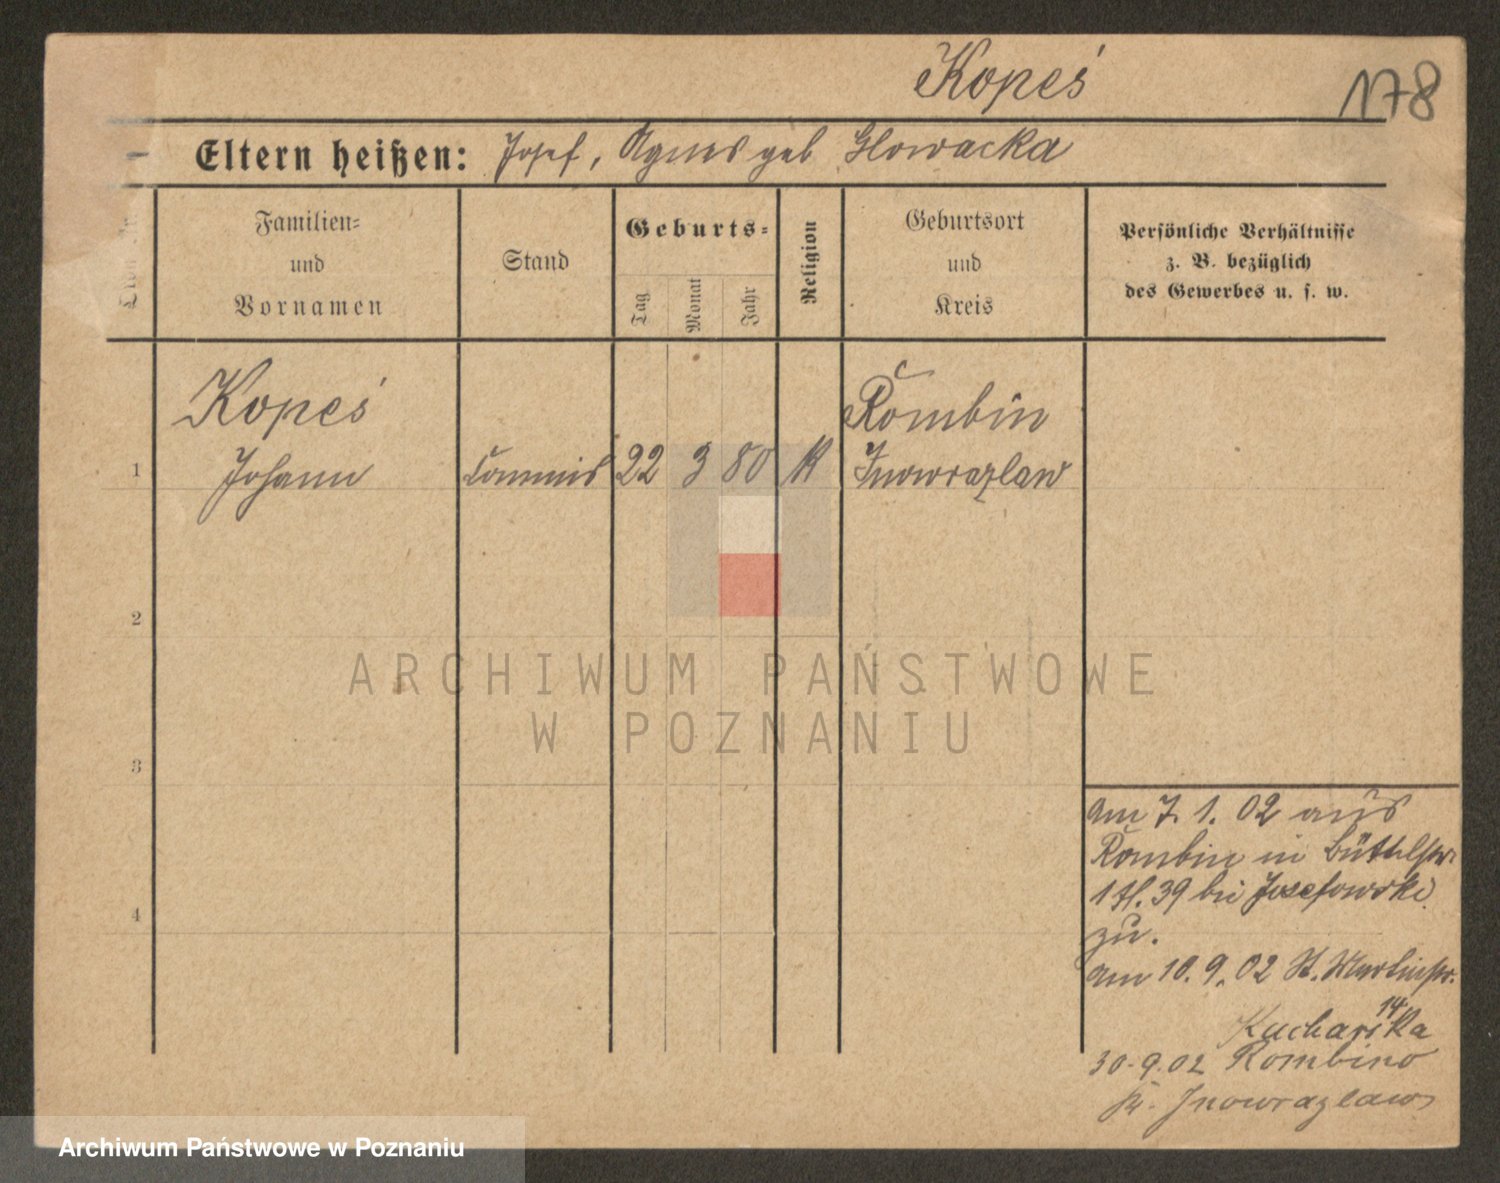 Kopeś
178
Eltern heißen: Josef, Agnes geb Glowacka
Familien-
und
Vornamen
Stand
Geburts-
Tag
Monat
Jahr
Religion
Geburtsort
und
Kreis
Persönliche Verhältnisse
z. B. bezüglich
des Gewerbes u. s. w.
Kopeś
Rombin
1 Johann Commis 22 3 80 K Inowrazlaw
2
ARCHIWUM PAŃSTWOWE
W POZNANIU
3
am 7. 1. 02 aus
Rombin in Büttelstr
39 bei Josefowski
zu.
4
am 10. 9. 02 St. Martinstr.
14
Kucharska
30.9.02 Rombino
Kr. Inowrazlaw
Archiwum Państwowe w Poznaniu